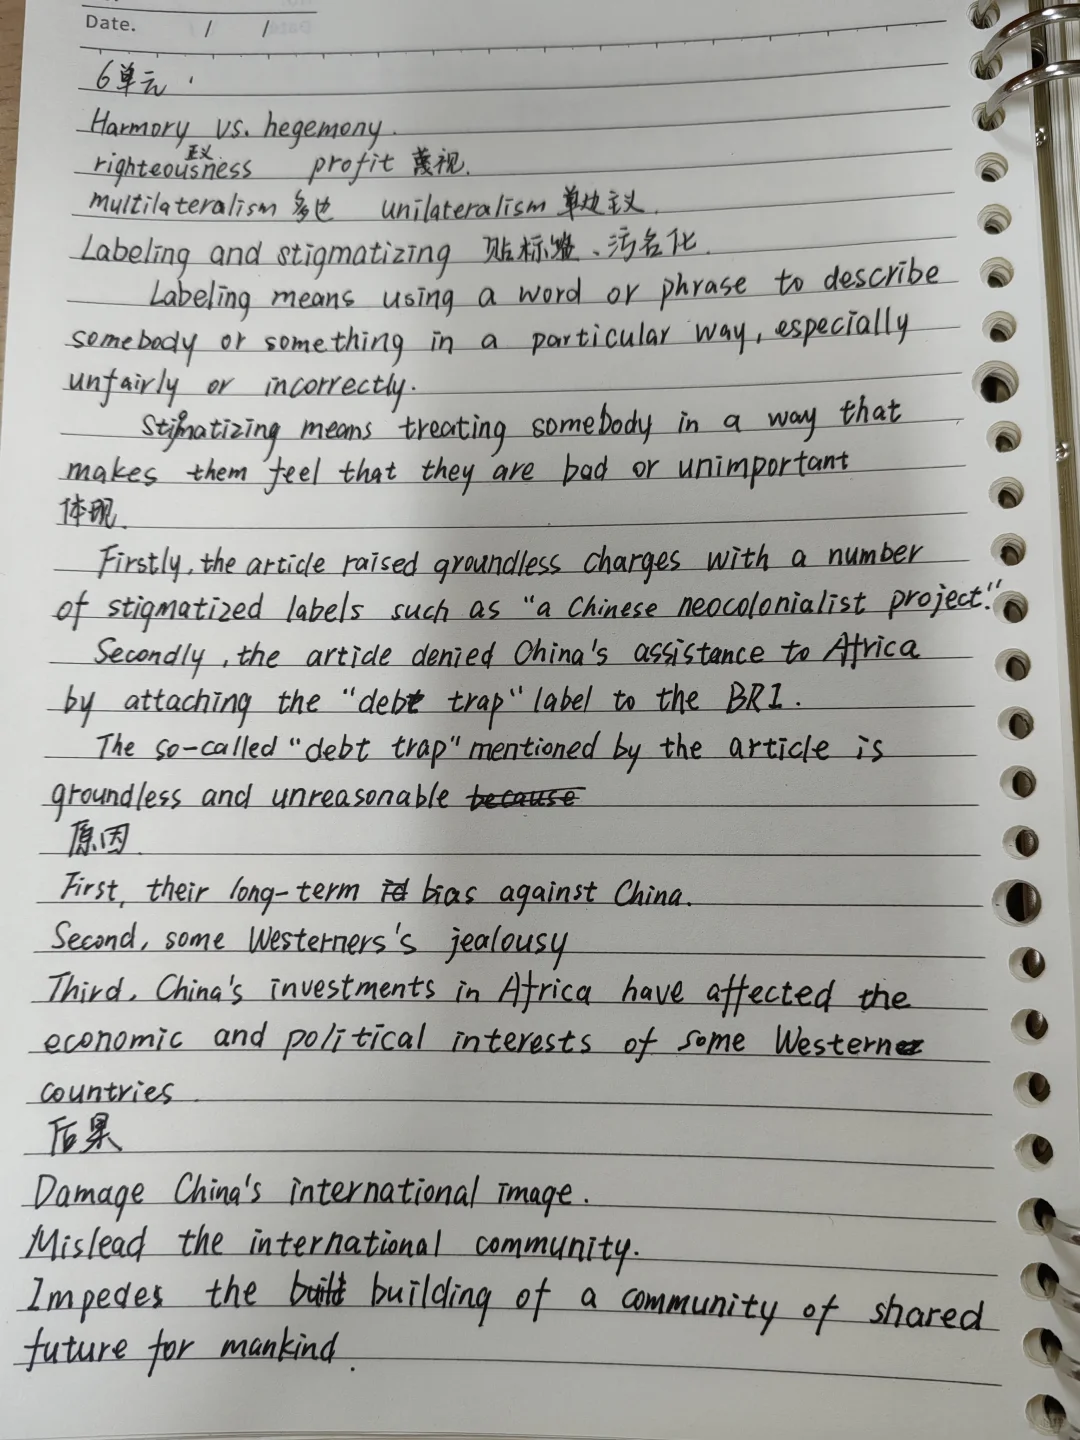 Date. / /
6单元
Harmory vs. hegemony.
正义
righteousness profit 蔑视.
multilateralism 多边 unilateralism 单边主义.
Labeling and stigmatizing 贴标签、污名化.
Labeling means using a word or phrase to describe
somebody or something in a particular way, especially
unfairly or incorrectly.
Stigmatizing means treating somebody in a way that
makes them feel that they are bad or unimportant
体现.
Firstly, the article raised groundless charges with a number
of stigmatized labels such as "a Chinese neocolonialist project."
Secondly, the article denied China's assistance to Africa
by attaching the "debt trap" label to the BRI.
The so-called "debt trap" mentioned by the article is
groundless and unreasonable because
原因.
First, their long-term bias against China.
Second, some Westerners's jealousy
Third, China's investments in Africa have affected the
economic and political interests of some Western
countries.
后果
Damage China's international image.
Mislead the international community.
Impedes the built building of a community of shared
future for mankind.